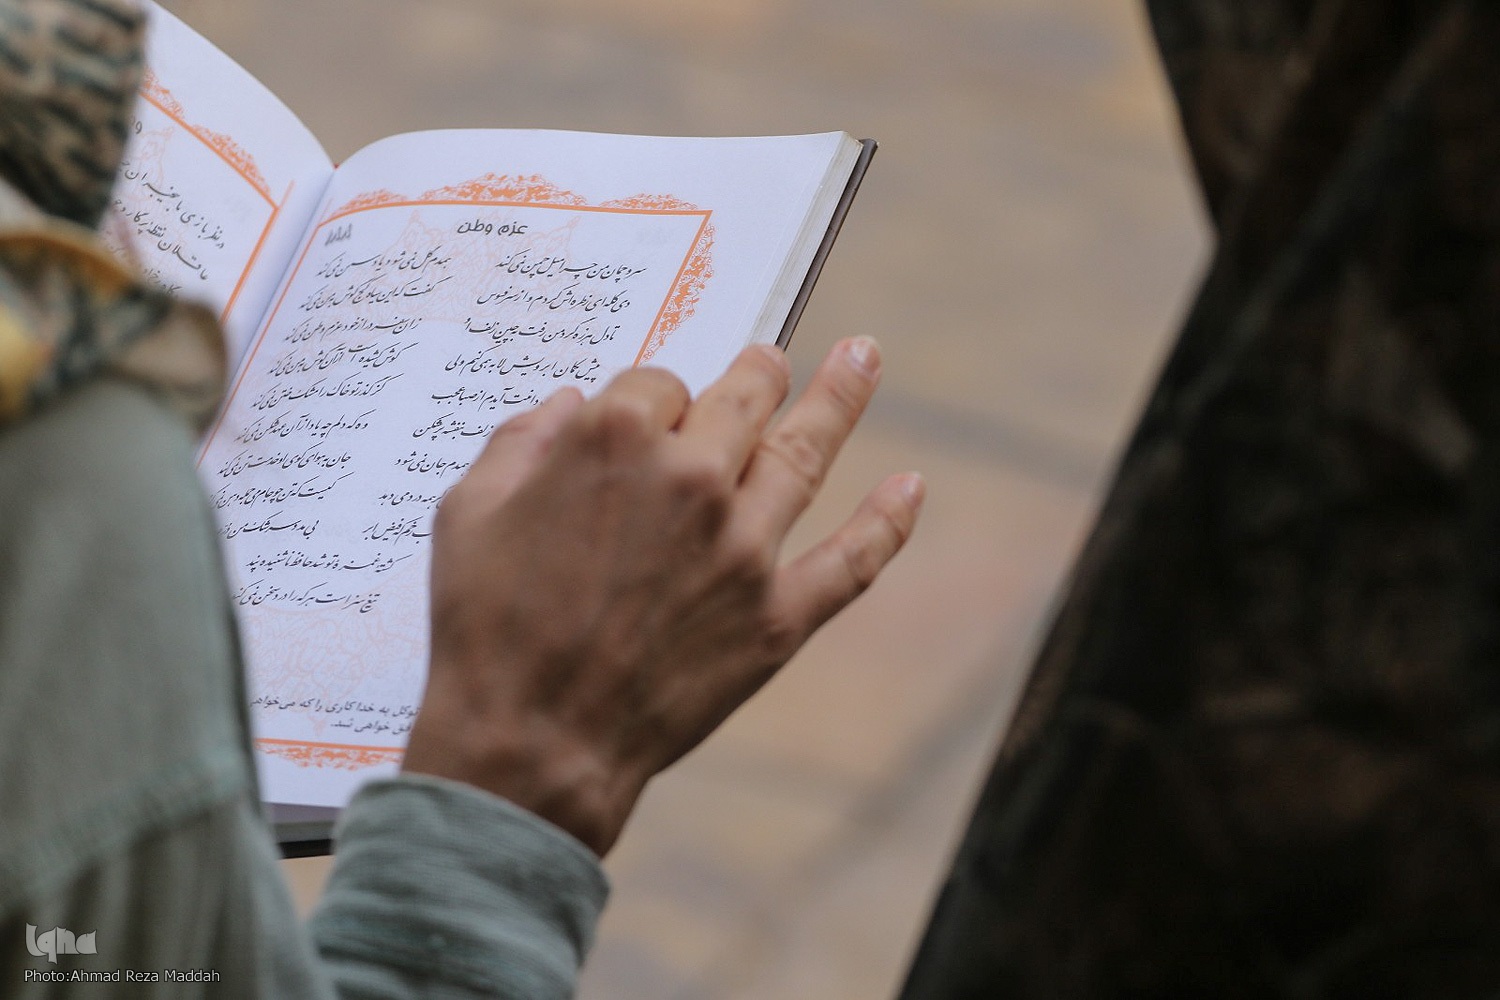 در نظربازی ما بیخبران
عاقلان نقطه پرگار وجو
عزم وطن
سرو چمان من چرا میل چمن نمی‌کند همدم گل نمی‌شود یاد سمن نمی‌کند
دی گله‌ای ز طره‌اش کردم و از سر فسوس گفت که این سیاه کج گوش به من نمی‌کند
تا دل هرزه گرد من رفت به چین زلف او زان سفر دراز خود عزم وطن نمی‌کند
پیش کمان ابرویش لابه همی کنم ولی گوش کشیده است از آن گوش به من نمی‌کند
دامنت آیدم از صبا عجب کز گذر تو خاک را مشک ختن نمی‌کند
زلف بنفشه پرشکن وه که دلم چه یاد از آن عهد شکن نمی‌کند
همدم جان نمی‌شود جان به هوای کوی او خدمت تن نمی‌کند
همه درد می دهد کیست که تن چو جام می جمله دهن نمی‌کند
رخم که فیض ابر بی مدد سرشک من
کشته غمزه تو شد حافظ ناشنیده پند
تیغ سزاست هر که را درد سخن نمی‌کند
توکل به خدا کاری را که می‌خواهی
خواهی شد.
Iqna
Photo:Ahmad Reza Maddah